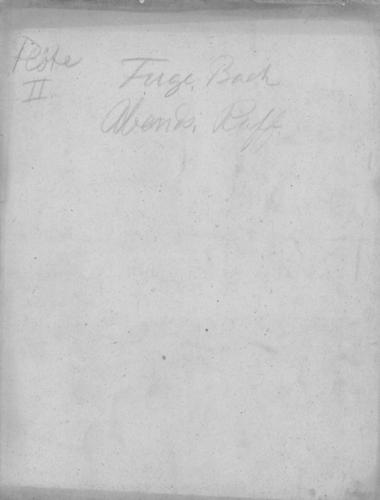 Flöte
II
Fuge, Bach
Abends, Raff